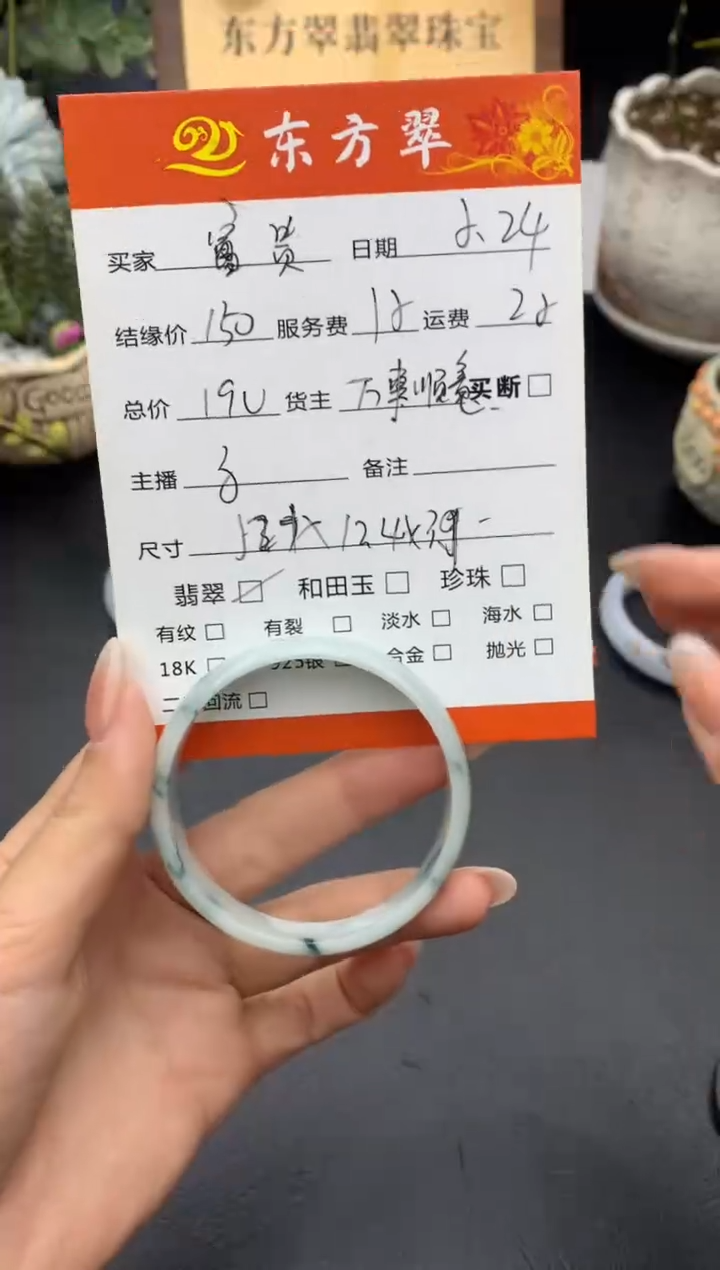 东方翠翡翠珠宝
东方翠
买家 富贵 日期 24
结缘价 150 服务费 运费
总价 190 货主 万事顺意 买断
主播 备注
尺寸
翡翠 和田玉 珍珠
有纹 有裂 淡水 海水
18K 925银 合金 抛光
回流
GOOD